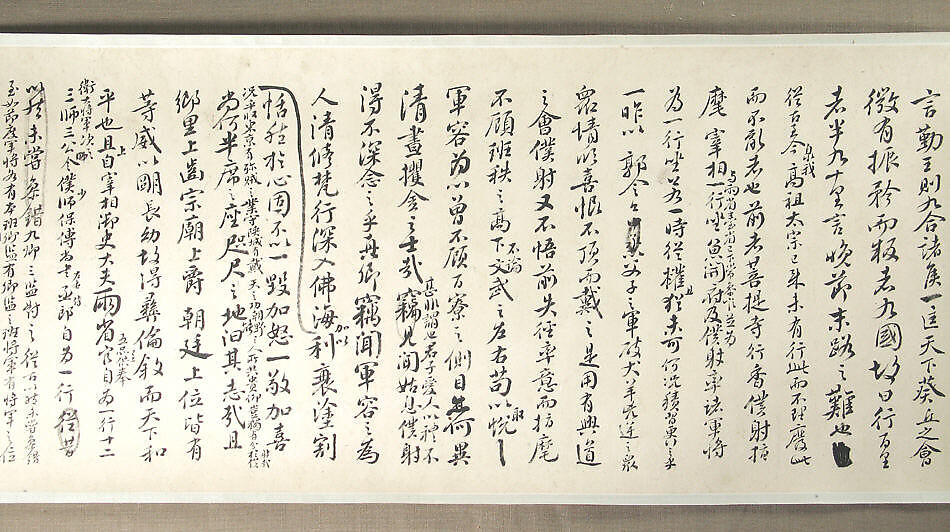 言勤王則九合諸侯一匡天下葵丘之會
微有振矜而叛者九國故曰行百里
者半九十里言晚節末路之難也
從古至今暨我高祖太宗已來未有行此而不理廢此
而不亂者也前者菩提寺行香僕射指
麾宰相與兩省臺省已下常參官並為一行坐魚開府及僕射率諸軍將
為一行坐若一時從權亦猶未可何況積習更
一昨以郭令公父子之軍破犬羊兇逆之眾
眾情欣喜恨不頂而戴之是用有興道
之會僕射又不悟前失徑率意而指麾
不顧班秩之高下不論文武之左右苟以取悅
軍容為心曾不顧百寮之側目亦何異
清晝攫金之士哉甚非謂也君子愛人以禮不竊見聞姑息僕射
得不深念之乎真卿竊聞軍容之為
人清修梵行深入佛海加以利衰塗割
恬然於心固不以一毀加怒一敬加喜
況乎收東京有殄賊之業守陝城有戴天之功朝野之人所共貴仰豈獨有分於僕射哉
尚何半席之座咫尺之地汨其志哉且
鄉里上齒宗廟上爵朝廷上位皆有
等威以明長幼故得彝倫敘而天下和
平也且上自宰相御史大夫兩省五品已上供奉官自為一行十二
衛大將軍次之
三師三公令僕少師保傅尚書左右丞侍郎自為一行
九卿三監對之從古以然未嘗參錯
至如節度軍將各有本班卿監有卿監之班將軍有將軍之位